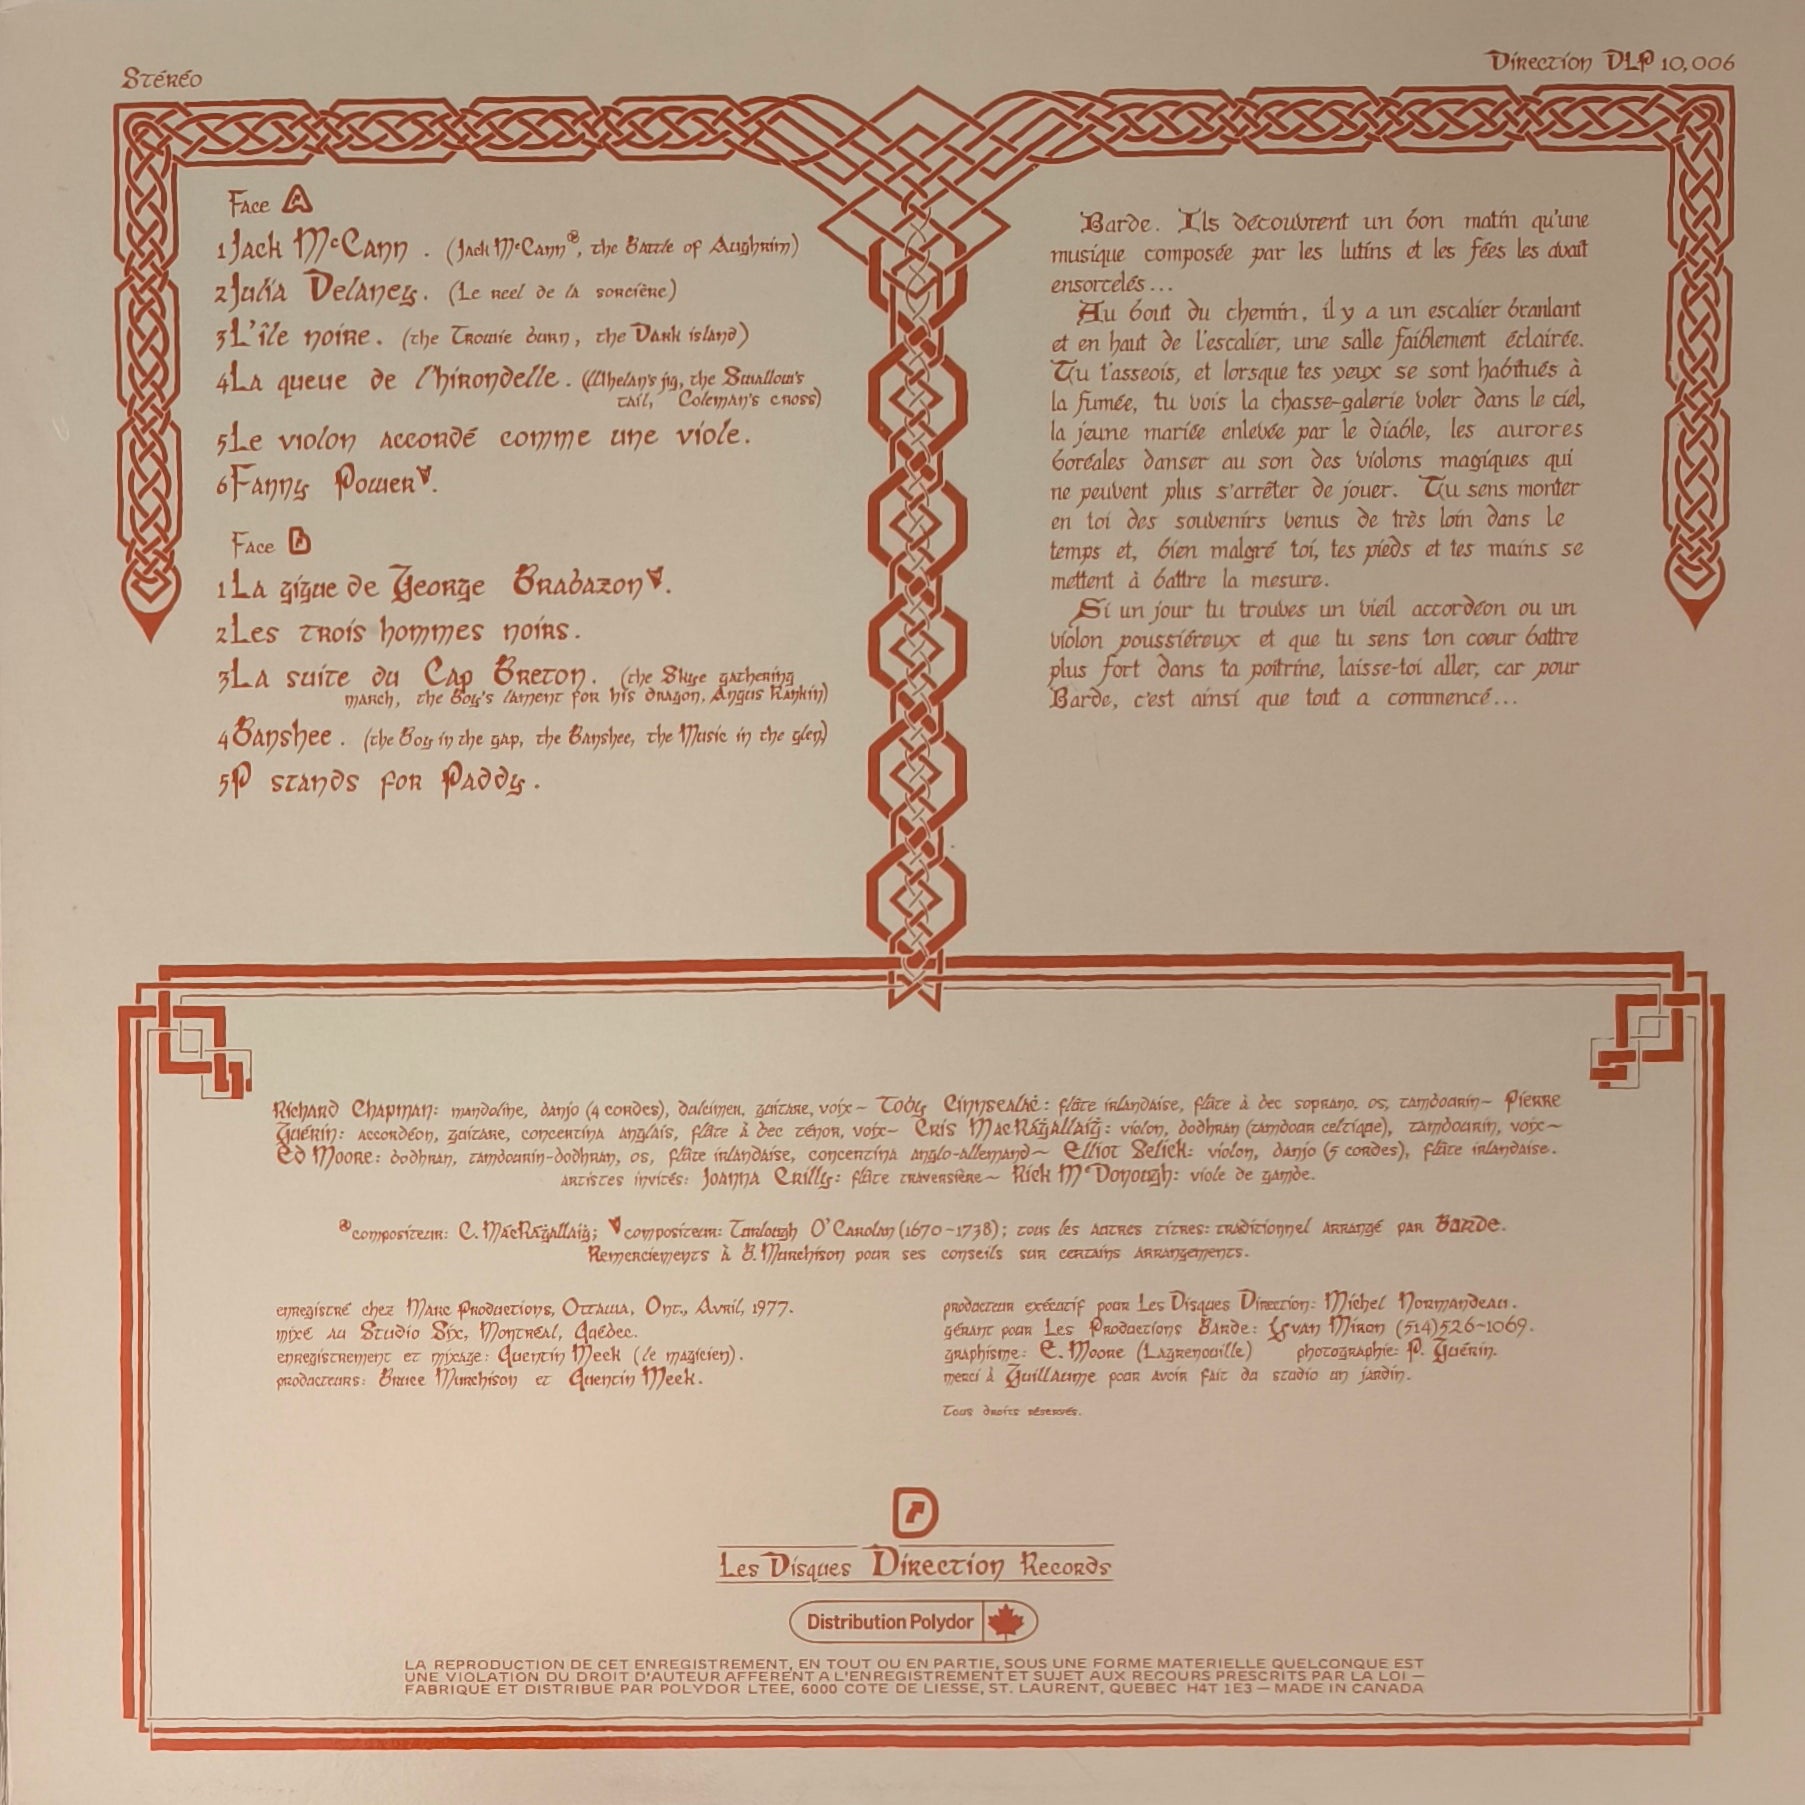 Stéréo
Direction DLP 10,006
Face A
1 Jack McCann. (Jack McCann®, the Battle of Aughrim)
2 Julia Delaney. (Le reel de la sorcière)
3 L'île noire. (the Trowie burn, the Dark island)
4 La queue de l'hirondelle. (Whelan's jig, the Swallow's
tail, Coleman's cross)
5 Le violon accordé comme une viole.
6 Fanny Power▼.
Face B
1 La gigue de George Brabazon▼.
2 Les trois hommes noirs.
3 La suite du Cap Breton. (the Skye gathering
march, the Boy's lament for his dragon, Angus Rankin)
4 Banshee. (the Boy in the gap, the Banshee, the Music in the glen)
5 P stands for Paddy.
Barde. Ils découvrent un bon matin qu'une
musique composée par les lutins et les fées les avait
ensorcelés...
Au bout du chemin, il y a un escalier branlant
et en haut de l'escalier, une salle faiblement éclairée.
Tu t'asseois, et lorsque tes yeux se sont habitués à
la fumée, tu vois la chasse-galerie voler dans le ciel,
la jeune mariée enlevée par le diable, les aurores
boréales danser au son des violons magiques qui
ne peuvent plus s'arrêter de jouer. Tu sens monter
en toi des souvenirs venus de très loin dans le
temps et, bien malgré toi, tes pieds et tes mains se
mettent à battre la mesure.
Si un jour tu trouves un vieil accordéon ou un
violon poussiéreux et que tu sens ton coeur battre
plus fort dans ta poitrine, laisse-toi aller, car pour
Barde, c'est ainsi que tout a commencé...
Richard Chapman: mandoline, banjo (4 cordes), dulcimer, guitare, voix~ Toby Cinnsealać: flûte irlandaise, flûte à bec soprano, os, tambourin~ Pierre
Guérin: accordéon, guitare, concertina anglais, flûte à bec ténor, voix~ Cris MacRáġallaiġ: violon, bodhran (tambour celtique), tambourin, voix~
Ed Moore: bodhran, tambourin-bodhran, os, flûte irlandaise, concertina anglo-allemand~ Elliot Selick: violon, banjo (5 cordes), flûte irlandaise.
artistes invités: Joanna Crilly: flûte traversière~ Rick McDonough: viole de gambe.
®compositeur: C. MacRáġallaiġ; ▼compositeur: Turlough O'Carolan (1670-1738); tous les autres titres: traditionnel arrangé par Barde.
Remerciements à B. Murchison pour ses conseils sur certains arrangements.
enregistré chez Marc Productions, Ottawa, Ont., Avril, 1977.
mixé au Studio Six, Montréal, Québec.
enregistrement et mixage: Quentin Meek (le magicien).
producteurs: Bruce Murchison et Quentin Meek.
producteur exécutif pour Les Disques Direction: Michel Normandeau.
gérant pour Les Productions Barde: Yvan Miron (514)526-1069.
graphisme: E. Moore (Lagrenouille) photographie: P. Guérin.
merci à Guillaume pour avoir fait du studio un jardin.
Tous droits réservés.
Les Disques Direction Records
Distribution Polydor
LA REPRODUCTION DE CET ENREGISTREMENT, EN TOUT OU EN PARTIE, SOUS UNE FORME MATERIELLE QUELCONQUE EST
UNE VIOLATION DU DROIT D'AUTEUR AFFERENT A L'ENREGISTREMENT ET SUJET AUX RECOURS PRESCRITS PAR LA LOI —
FABRIQUE ET DISTRIBUE PAR POLYDOR LTEE, 6000 COTE DE LIESSE, ST. LAURENT, QUEBEC H4T 1E3 — MADE IN CANADA